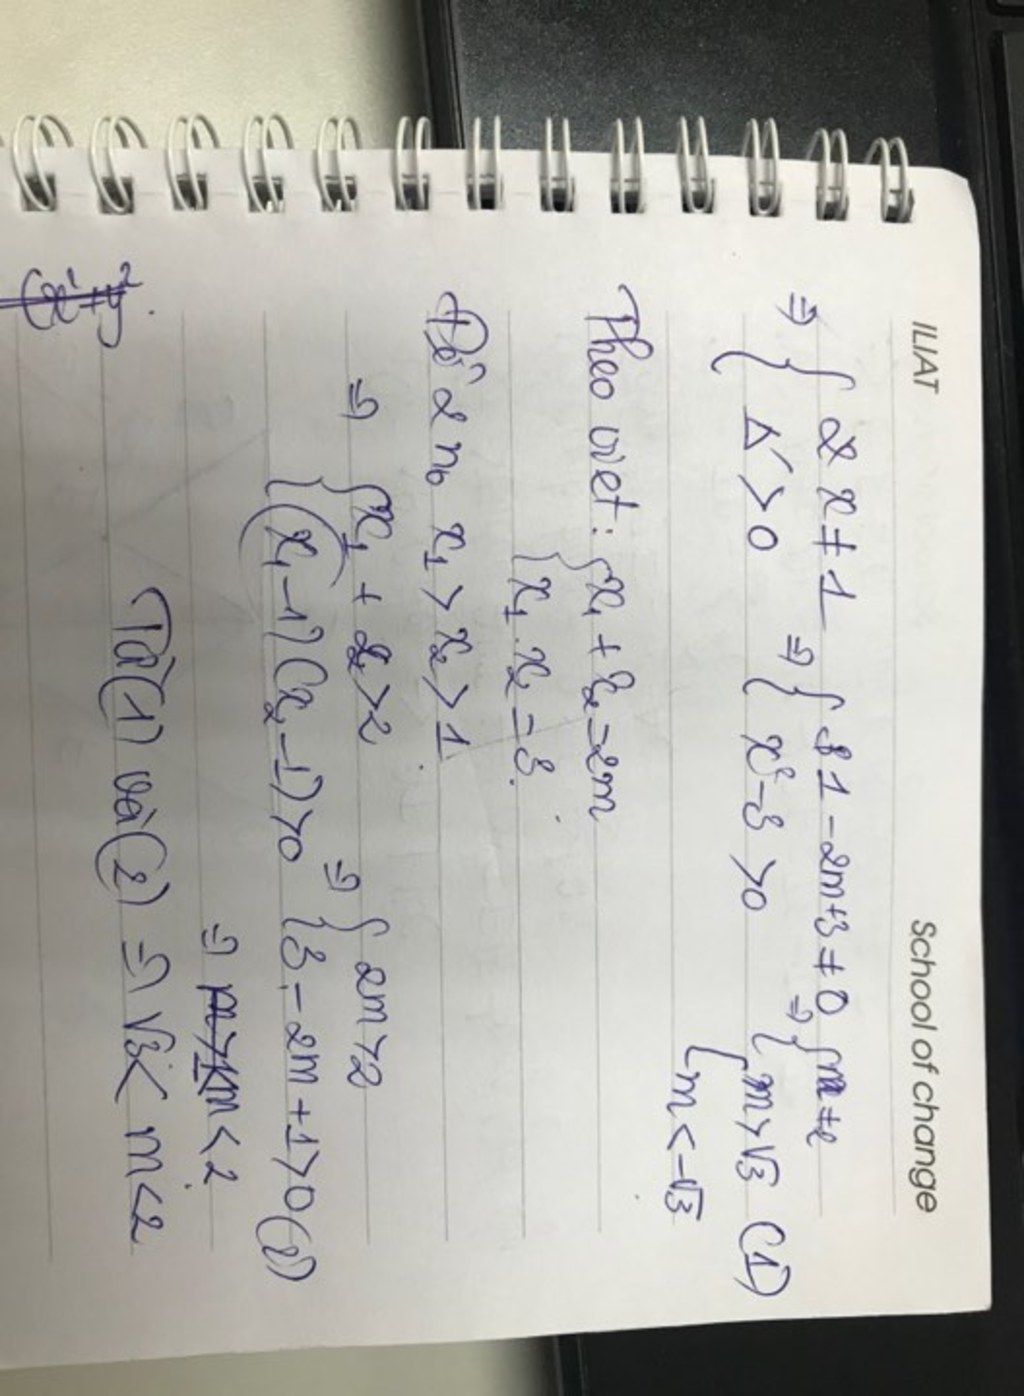 ILIAT School of change
⇒ { x ≠ 1 ⇒ { 1 - 2m+3 ≠ 0 ⇒ { m ≠ 2
{ Δ' > 0 { x² - 3 > 0 { m > √3 (1)
{ m < -√3
Theo viet: { x₁ + x₂ = 2m
{ x₁ . x₂ = 3.
Để 2 n₀ x₁ > x₂ > 1.
⇒ { x₁ + x₂ > 2 ⇒ { 2m > 2
{ (x₁ - 1) (x₂ - 1) > 0 { 3 - 2m + 1 > 0 (2)
⇒ m < 2
Từ (1) và (2) ⇒ √3 < m < 2